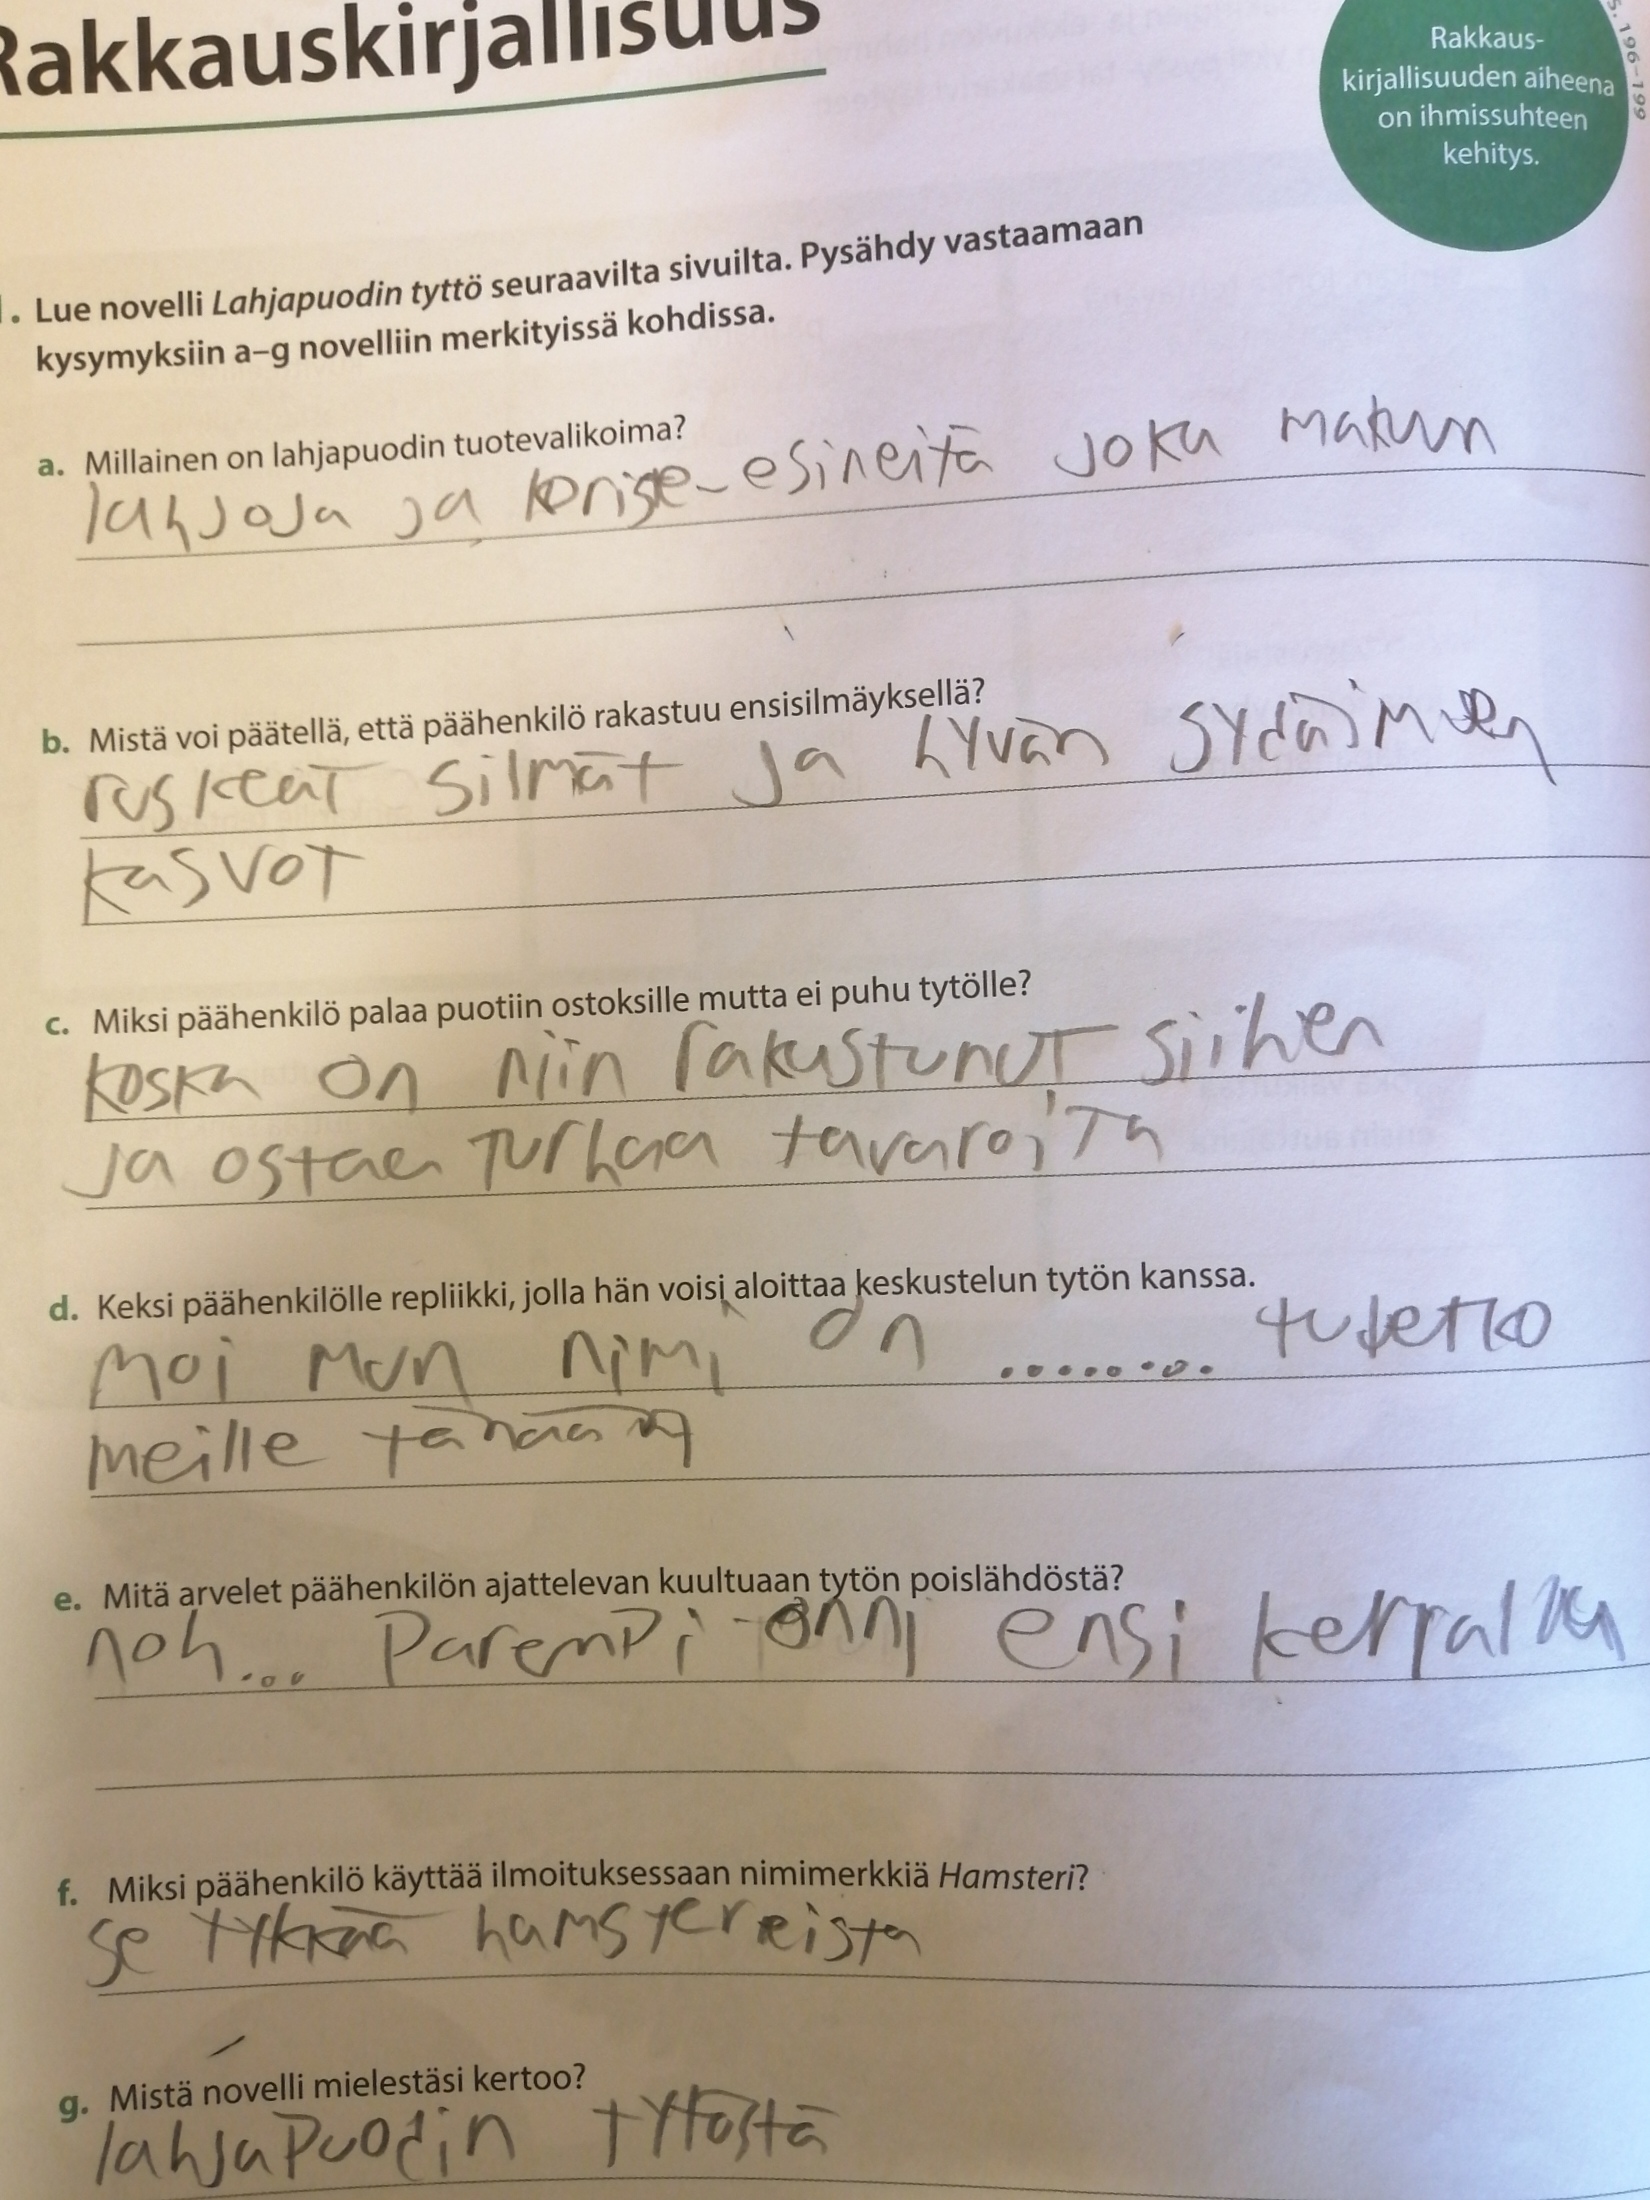 Rakkauskirjallisuus
S. 196–199
Rakkaus-
kirjallisuuden aiheena
on ihmissuhteen
kehitys.
1. Lue novelli Lahjapuodin tyttö seuraavilta sivuilta. Pysähdy vastaamaan
kysymyksiin a–g novelliin merkityissä kohdissa.
a. Millainen on lahjapuodin tuotevalikoima?
lahjoja ja korise-esineitä joka makuun
b. Mistä voi päätellä, että päähenkilö rakastuu ensisilmäyksellä?
ruskeat silmät ja hyvän sydäimen
kasvot
c. Miksi päähenkilö palaa puotiin ostoksille mutta ei puhu tytölle?
koska on niin rakastunut siihen
ja ostaa turhaa tavaroita
d. Keksi päähenkilölle repliikki, jolla hän voisi aloittaa keskustelun tytön kanssa.
moi mun nimi on ......... tuletko
meille tänään
e. Mitä arvelet päähenkilön ajattelevan kuultuaan tytön poislähdöstä?
noh... parempi onni ensi kerralla
f. Miksi päähenkilö käyttää ilmoituksessaan nimimerkkiä Hamsteri?
se tykkää hamsterreista
g. Mistä novelli mielestäsi kertoo?
lahjapuodin tytöstä